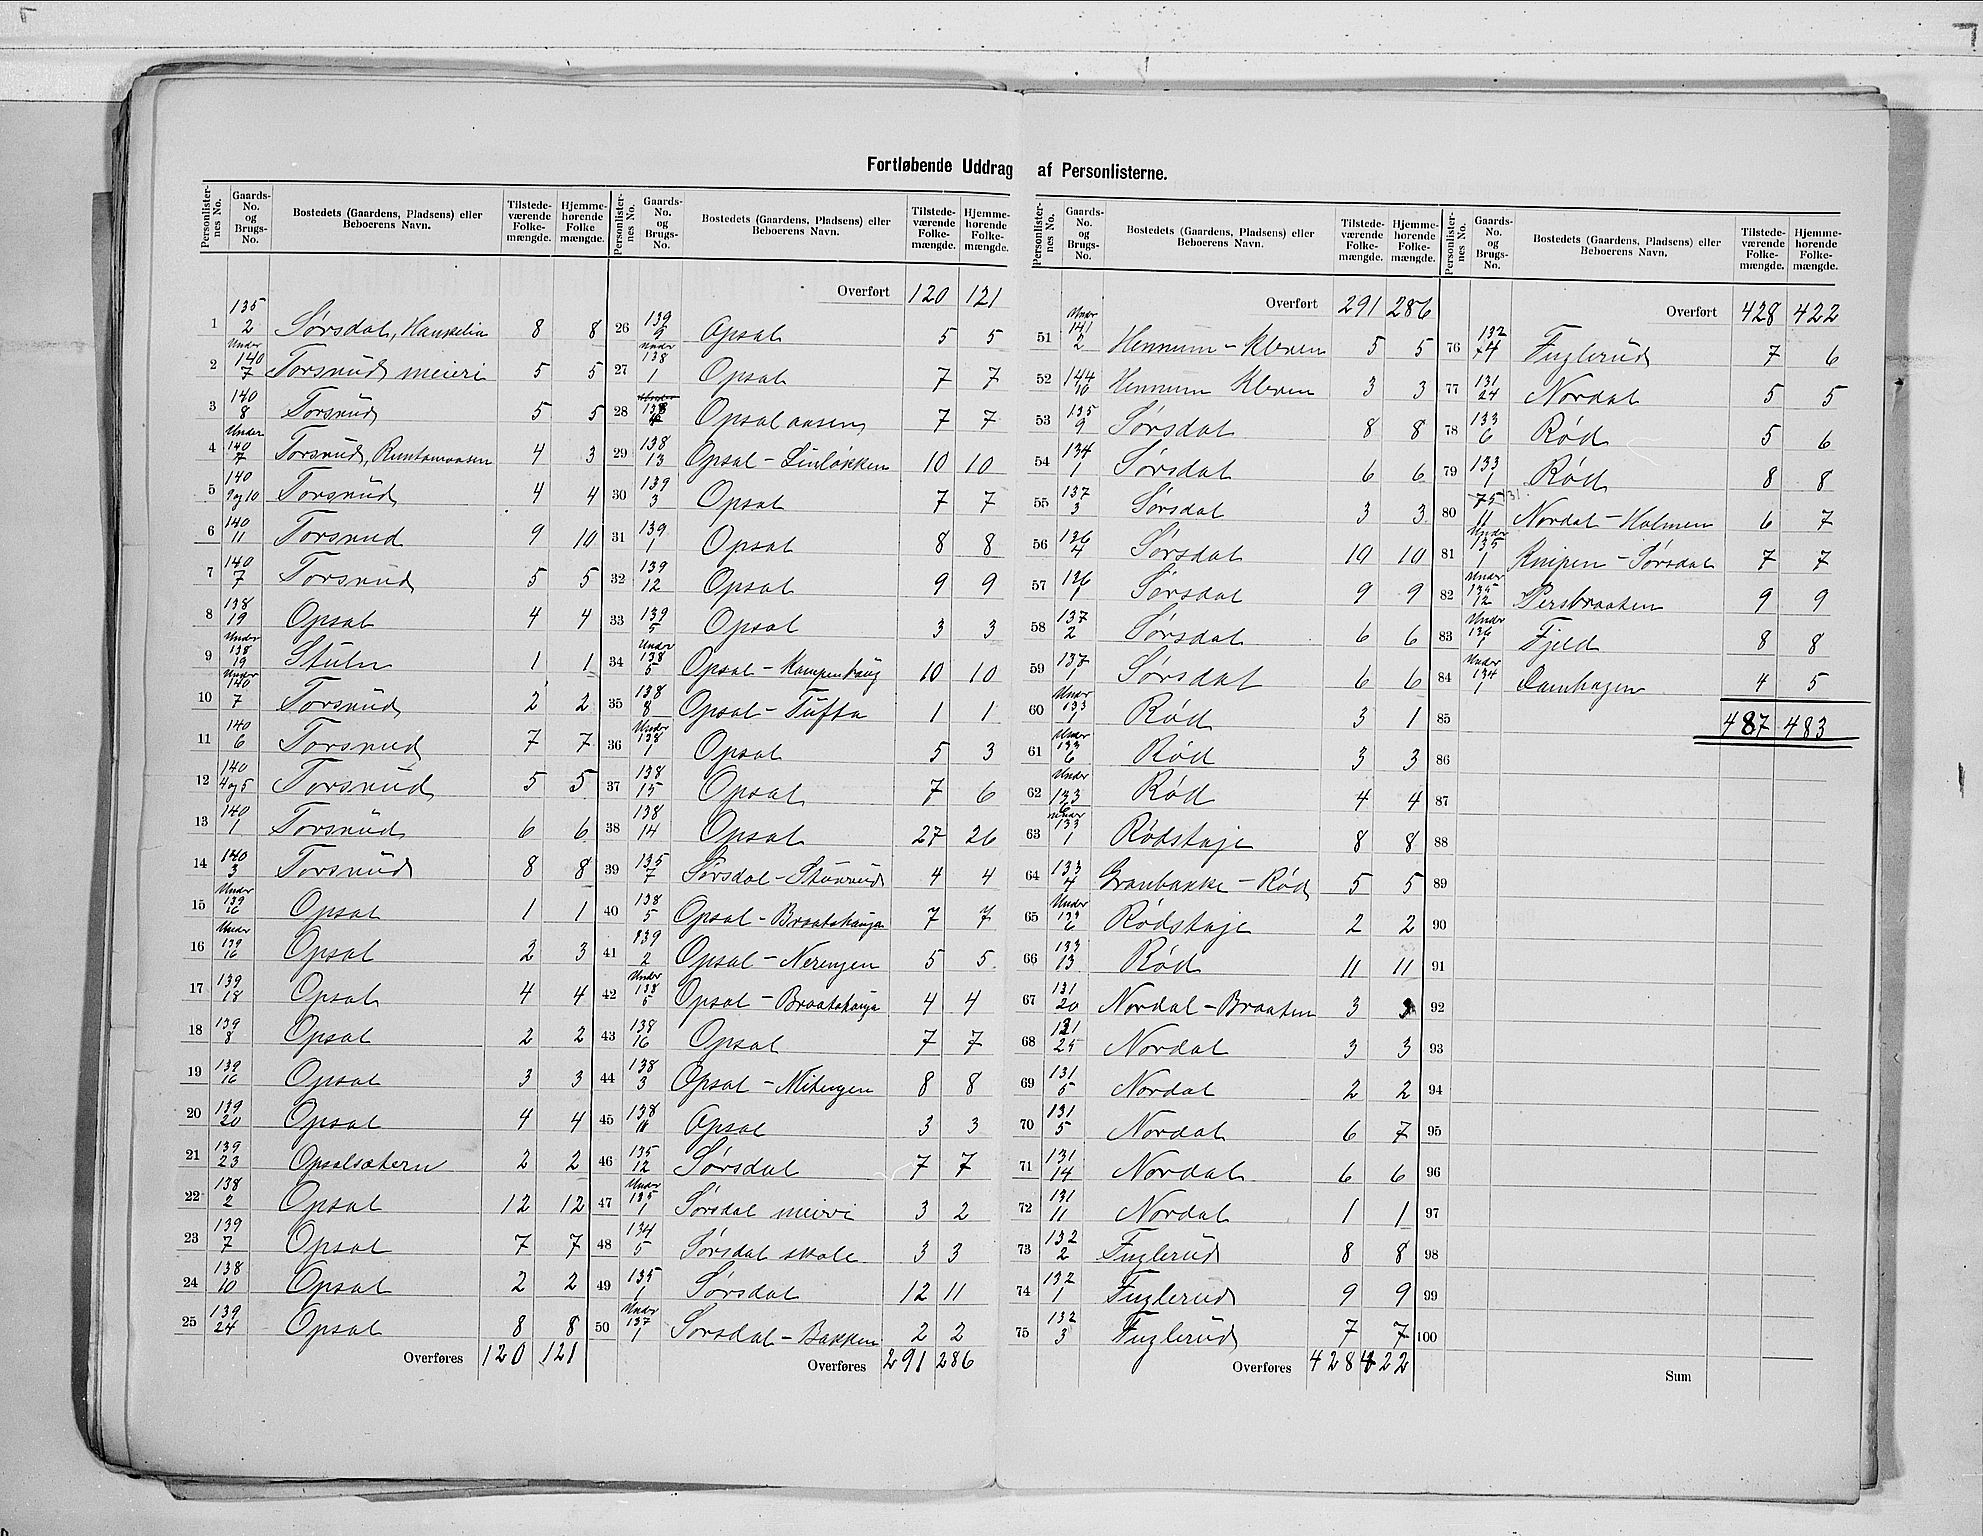 Fortløbende Uddrag af Personlisterne.
Personlister-nes No. | Gaards-No. og Brugs-No. | Bostedets (Gaardens, Pladsens) eller Beboerens Navn. | Tilstede-værende Folke-mængde. | Hjemme-hørende Folke mængde.
1 | 135/2 | Sørsdal, | 8 | 8
2 | Under 140/7 | Torsrud meieri | 5 | 5
3 | 140/8 | Torsrud | 5 | 5
4 | Under 140/7 | Torsrud, | 4 | 3
5 | 140/9og10 | Torsrud | 4 | 4
6 | 140/11 | Torsrud | 9 | 10
7 | 140/7 | Torsrud | 5 | 5
8 | 138/19 | Opsal | 4 | 4
9 | Under 138/19 | Stuln | 1 | 1
10 | Under 140/7 | Torsrud | 2 | 2
11 | 140/6 | Torsrud | 7 | 7
12 | 140/4og5 | Torsrud | 5 | 5
13 | 140/1 | Torsrud | 6 | 6
14 | 140/3 | Torsrud | 8 | 8
15 | Under 139/16 | Opsal | 1 | 1
16 | Under 139/16 | Opsal | 2 | 3
17 | 139/18 | Opsal | 4 | 4
18 | 139/8 | Opsal | 2 | 2
19 | 139/16 | Opsal | 3 | 3
20 | 139/20 | Opsal | 4 | 4
21 | 139/23 | Opsalsætern | 2 | 2
22 | 138/2 | Opsal | 12 | 12
23 | 139/7 | Opsal | 7 | 7
24 | 138/10 | Opsal | 2 | 2
25 | 139/24 | Opsal | 8 | 8
Overføres | 120 | 121
Personlister-nes No. | Gaards-No. og Brugs-No. | Bostedets (Gaardens, Pladsens) eller Beboerens Navn. | Tilstede-værende Folke-mængde. | Hjemme-hørende Folke-mængde.
Overført | 120 | 121
26 | 139/9 | Opsal | 5 | 5
27 | Under 138/1 | Opsal | 7 | 7
28 | 138/4 | Opsalaasen | 7 | 7
29 | 138/13 | Opsal - Linløkken | 10 | 10
30 | 139/3 | Opsal | 7 | 7
31 | 139/1 | Opsal | 8 | 8
32 | 139/12 | Opsal | 9 | 9
33 | 139/5 | Opsal | 3 | 3
34 | Under 138/5 | Opsal - Kampenhaug | 10 | 10
35 | 138/8 | Opsal - Tufta | 1 | 1
36 | Under 138/1 | Opsal | 5 | 3
37 | 138/15 | Opsal | 7 | 6
38 | 138/14 | Opsal | 27 | 26
39 | 135/7 | Sørsdal - Stuvrud | 4 | 4
40 | 138/5 | Opsal - Braatahauga | 7 | 7
41 | 139/2 | Opsal - Nerengen | 5 | 5
42 | Under 138/5 | Opsal - Braatahauga | 4 | 4
43 | 138/16 | Opsal | 7 | 7
44 | 138/3 | Opsal - Mitengen | 8 | 8
45 | 138/11 | Opsal | 3 | 3
46 | 135/12 | Sørsdal | 7 | 7
47 | Under 135/1 | Sørsdal meieri | 3 | 2
48 | 134/5 | Sørsdal skole | 3 | 3
49 | 135/1 | Sørsdal | 12 | 11
50 | Under 137/1 | Sørsdal - Bakken | 2 | 2
Overføres | 291 | 286
Personlister-nes No. | Gaards-No. og Brugs-No. | Bostedets (Gaardens, Pladsens) eller Beboerens Navn. | Tilstede-værende Folke-mængde. | Hjemme-hørende Folke-mængde.
Overført | 291 | 286
51 | Under 141/2 | Hennum - Kleven | 5 | 5
52 | 144/10 | Hennum Kleven | 3 | 3
53 | 135/9 | Sørsdal | 8 | 8
54 | 134/1 | Sørsdal | 6 | 6
55 | 137/3 | Sørsdal | 3 | 3
56 | 136/4 | Sørsdal | 10 | 10
57 | 136/1 | Sørsdal | 9 | 9
58 | 137/2 | Sørsdal | 6 | 6
59 | 137/1 | Sørsdal | 6 | 6
60 | Under 133/1 | Rød | 3 | 1
61 | Under 133/6 | Rød | 3 | 3
62 | Under 133/6 | Rød | 4 | 4
63 | Under 133/1 | Rødshaje | 8 | 8
64 | 133/4 | Granbakke - Rød | 5 | 5
65 | Under 133/6 | Rødshaje | 2 | 2
66 | 133/13 | Rød | 11 | 11
67 | 131/20 | Nordal - Braaten | 3 | 3
68 | 131/25 | Nordal | 3 | 3
69 | 131/5 | Nordal | 2 | 2
70 | 131/5 | Nordal | 6 | 7
71 | 131/14 | Nordal | 6 | 6
72 | 131/11 | Nordal | 1 | 1
73 | 132/2 | Fuglerud | 8 | 8
74 | 132/1 | Fuglerud | 9 | 9
75 | 132/3 | Fuglerud | 7 | 7
Overføres | 428 | 422
Personlister-nes No. | Gaards-No. og Brugs-No. | Bostedets (Gaardens, Pladsens) eller Beboerens Navn. | Tilstede-værende Folke-mængde. | Hjemme-hørende Folke-mængde.
Overført | 428 | 422
76 | 132/4 | Fuglerud | 7 | 6
77 | 131/24 | Nordal | 5 | 5
78 | 133/6 | Rød | 5 | 6
79 | 133/1 | Rød | 8 | 8
80 | 75 131/11 | Nordal - Holmen | 6 | 7
81 | Under 135/1 | Knipen - Sørsdal | 7 | 7
82 | Under 135/12 | Persbraaten | 9 | 9
83 | Under 136/1 | Fjeld | 8 | 8
84 | Under 134/1 | Damhagen | 4 | 5
85 | 487 | 483
86
87
88
89
90
91
92
93
94
95
96
97
98
99
100
Sum